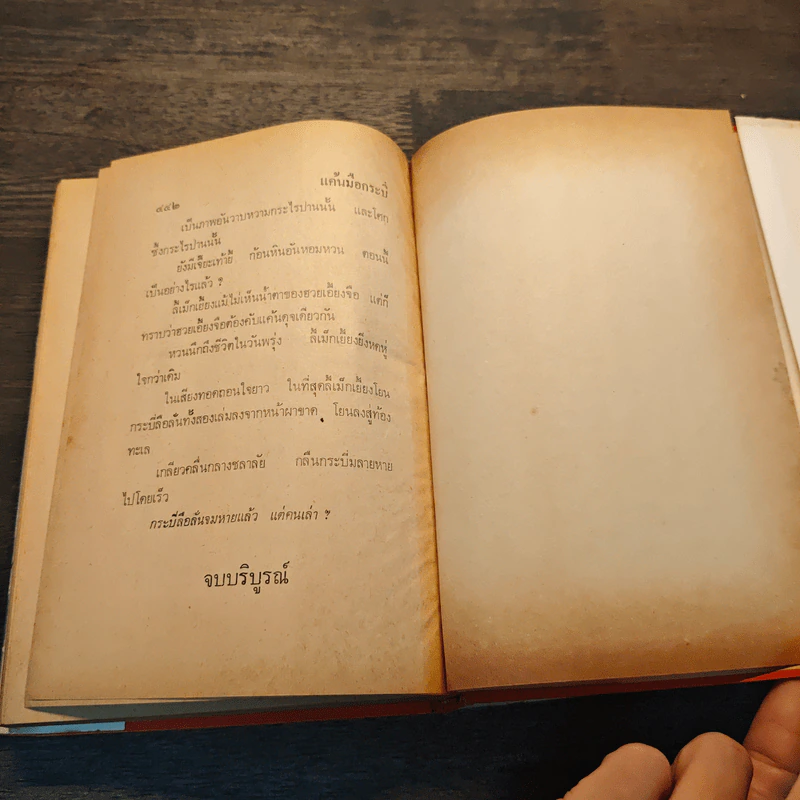 ๔๔๒ แค้นมือกระบี่
เป็นภาพอันวาบหวามกระไรปานนั้น และโศก
ซึ้งกระไรปานนั้น
ยังมีเจี๊ยะเท้ายี้ ก้อนหินอันหอมหวน ตอนนี้
เป็นอย่างไรแล้ว ?
ลี้เม็กเอี้ยงแม้ไม่เห็นน้ำตาของฮวยเอี้ยงจือ แต่ก็
ทราบว่าฮวยเอี้ยงจือต้องคับแค้นดุจเดียวกัน
หวนนึกถึงชีวิตในวันพรุ่ง ลี้เม็กเอี้ยงยิ่งหดหู่
ใจกว่าเดิม
ในเสียงทอดถอนใจยาว ในที่สุดลี้เม็กเอี้ยงโยน
กระบี่ลือลั่นทั้งสองเล่มลงจากหน้าผาขาด โยนลงสู่ท้อง
ทะเล
เกลียวคลื่นกลางชลาลัย กลืนกระบี่มลายหาย
ไปโดยเร็ว
กระบี่ลือลั่นจมหายแล้ว แต่คนเล่า ?
จบบริบูรณ์